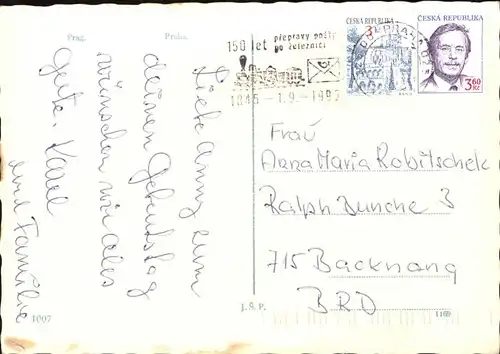 Praz
Praha
150 let přepravy pošty
po železnici
1845 - 1.9. - 1995
ČESKÁ REPUBLIKA
3
ČESKÁ REPUBLIKA
3,60
Kč
Liebe Anny zum
deinen Geburtstag
wünschen wir alles
Gute. Karel
und Familie
Frau
Anna Maria Robitschek
Ralph Bunche 3
715 Backnang
BRD
J. Š. P.
1169